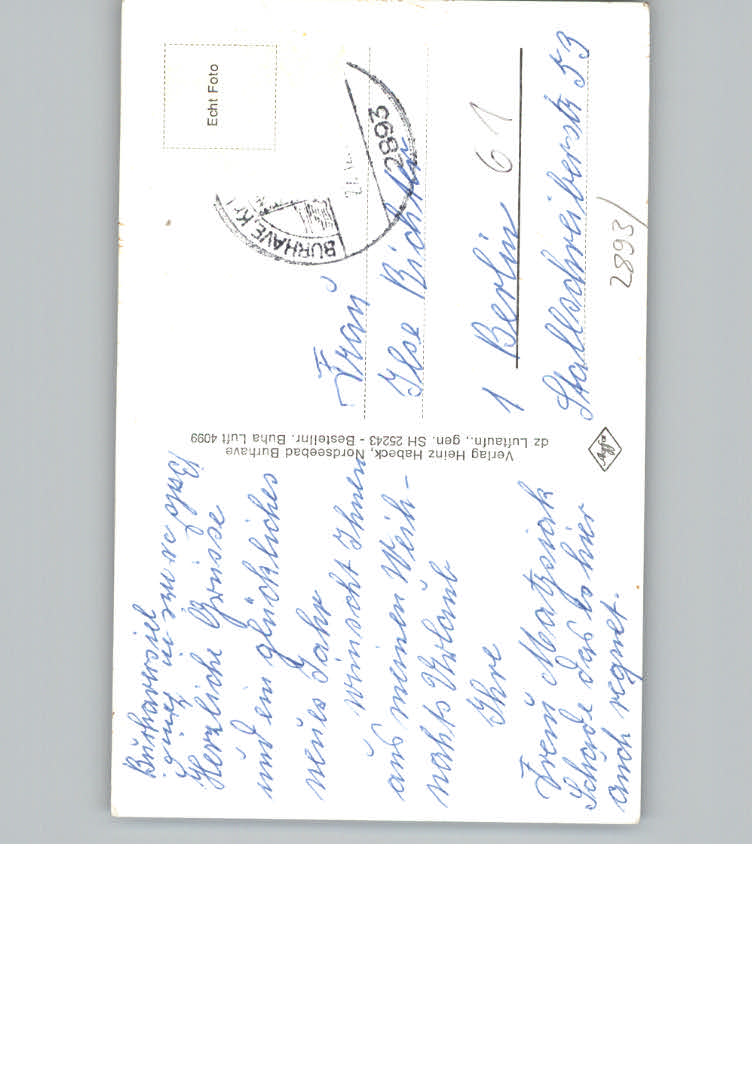 Burhavesiel
Herzliche Grüsse
und ein glückliches
neues Jahr
wünscht Ihnen
aus meinen Weih-
nahts Urlaub
Ihre
Schade das es hier
auch regnet.
Verlag Heinz Habeck, Nordseebad Burhave
dz Luftaufn., gen. SH 25243 - Bestellnr. Buha Luft 4099
Agfa
Echt Foto
2893
BURHAVE, Kr
Frau
Ilse Richter
1 Berlin 61
Stallschreiberstr 53
2893/